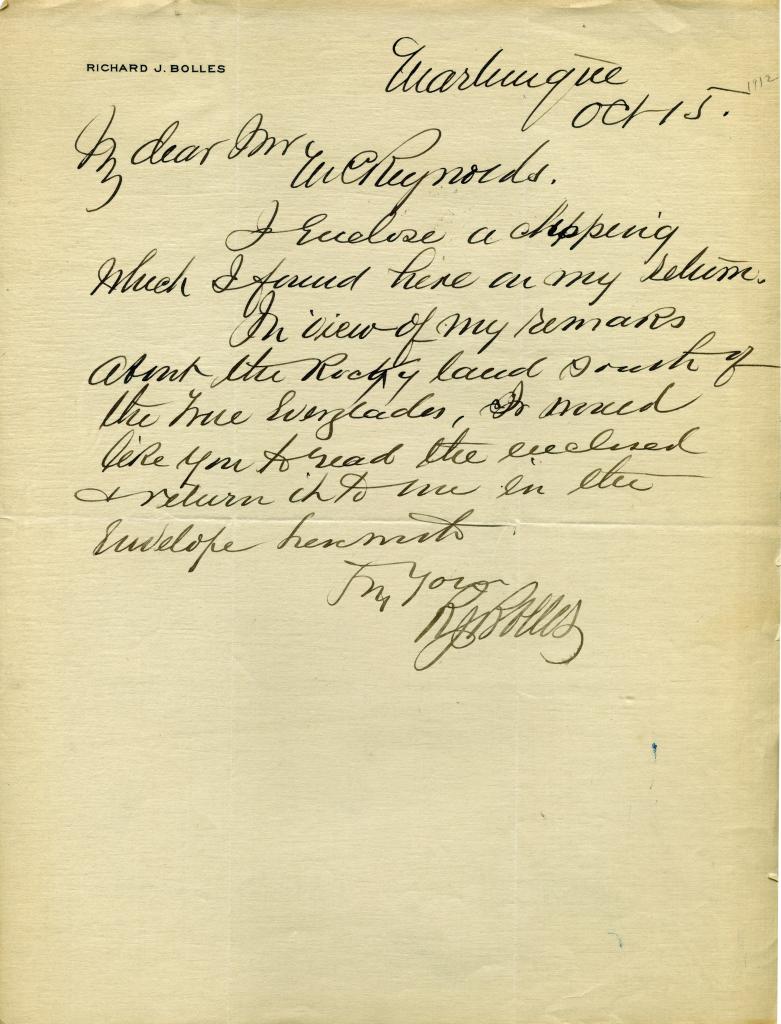 RICHARD J. BOLLES
Martinique
Oct 15.
1912
My dear Mr
McReynolds.
I Enclose a clipping
which I found here on my return.
In view of my remarks
about the Rocky land south of
the True Everglades, I would
like you to read the enclosed
& return it to me in the
Envelope herewith
Yours
RJBolles